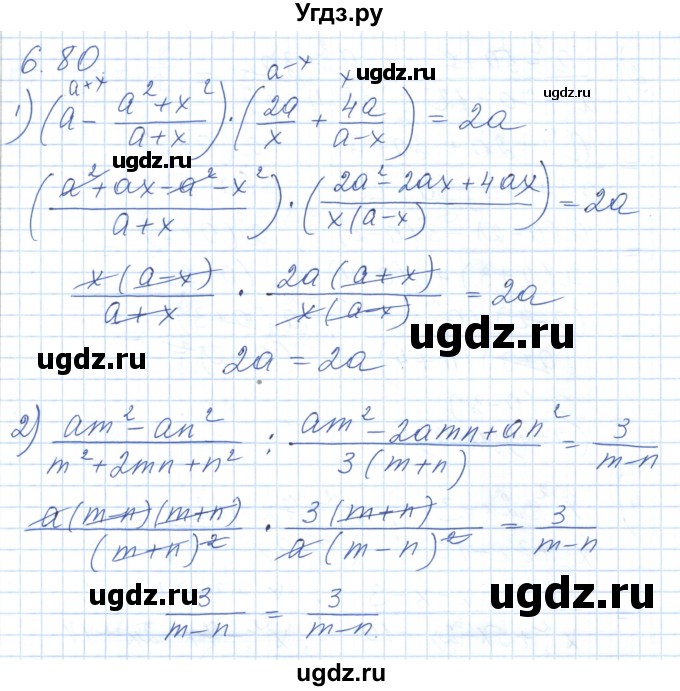 Угдз.ру
6.80.
a+x a-x x
1) (a - (a²+x²)/(a+x)) · (2a/x + 4a/(a-x)) = 2a
ugdz.ru
ugdz.ru
ugdz.ru
ugdz.ru
((a²+ax-a²-x²)/(a+x)) · ((2a²-2ax+4ax)/(x(a-x))) = 2a
x(a-x)/(a+x) · 2a(a+x)/(x(a-x)) = 2a
ugdz.ru
ugdz.ru
2a = 2a
2) (am²-an²)/(m²+2mn+n²) : (am²-2amn+an²)/(3(m+n)) = 3/(m-n)
a(m-n)(m+n)/(m+n)² · 3(m+n)/(a(m-n)²) = 3/(m-n)
ugdz.ru
ugdz.ru
ugdz.ru
3/(m-n) = 3/(m-n).
ugdz.ru